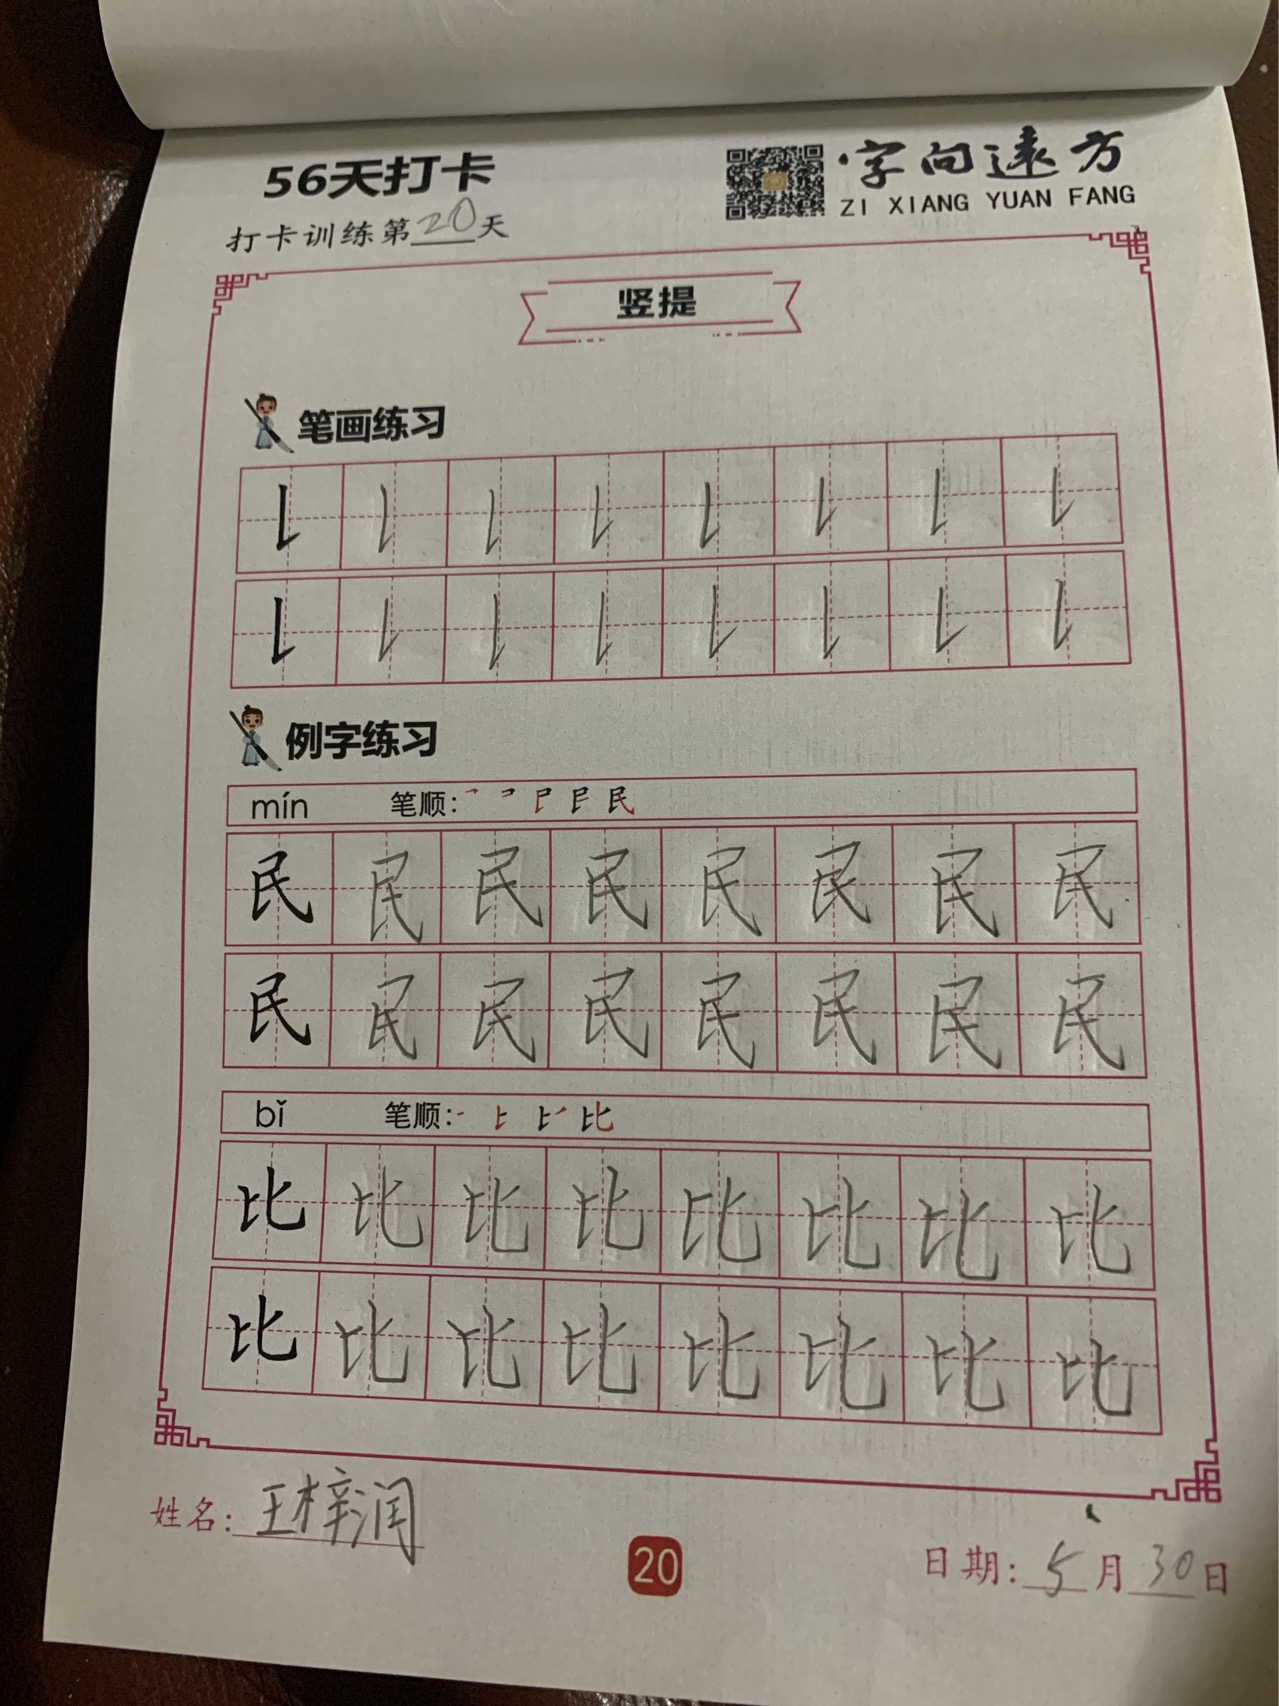 56天打卡
字向远方
ZI XIANG YUAN FANG
打卡训练第20天
竖提
笔画练习
例字练习
mín 笔顺:
民 民 民 民 民 民 民 民
民 民 民 民 民 民 民 民
bǐ 笔顺:
比 比 比 比 比 比 比 比
比 比 比 比 比 比 比 比
姓名: 王梓润
20
日期: 5月30日